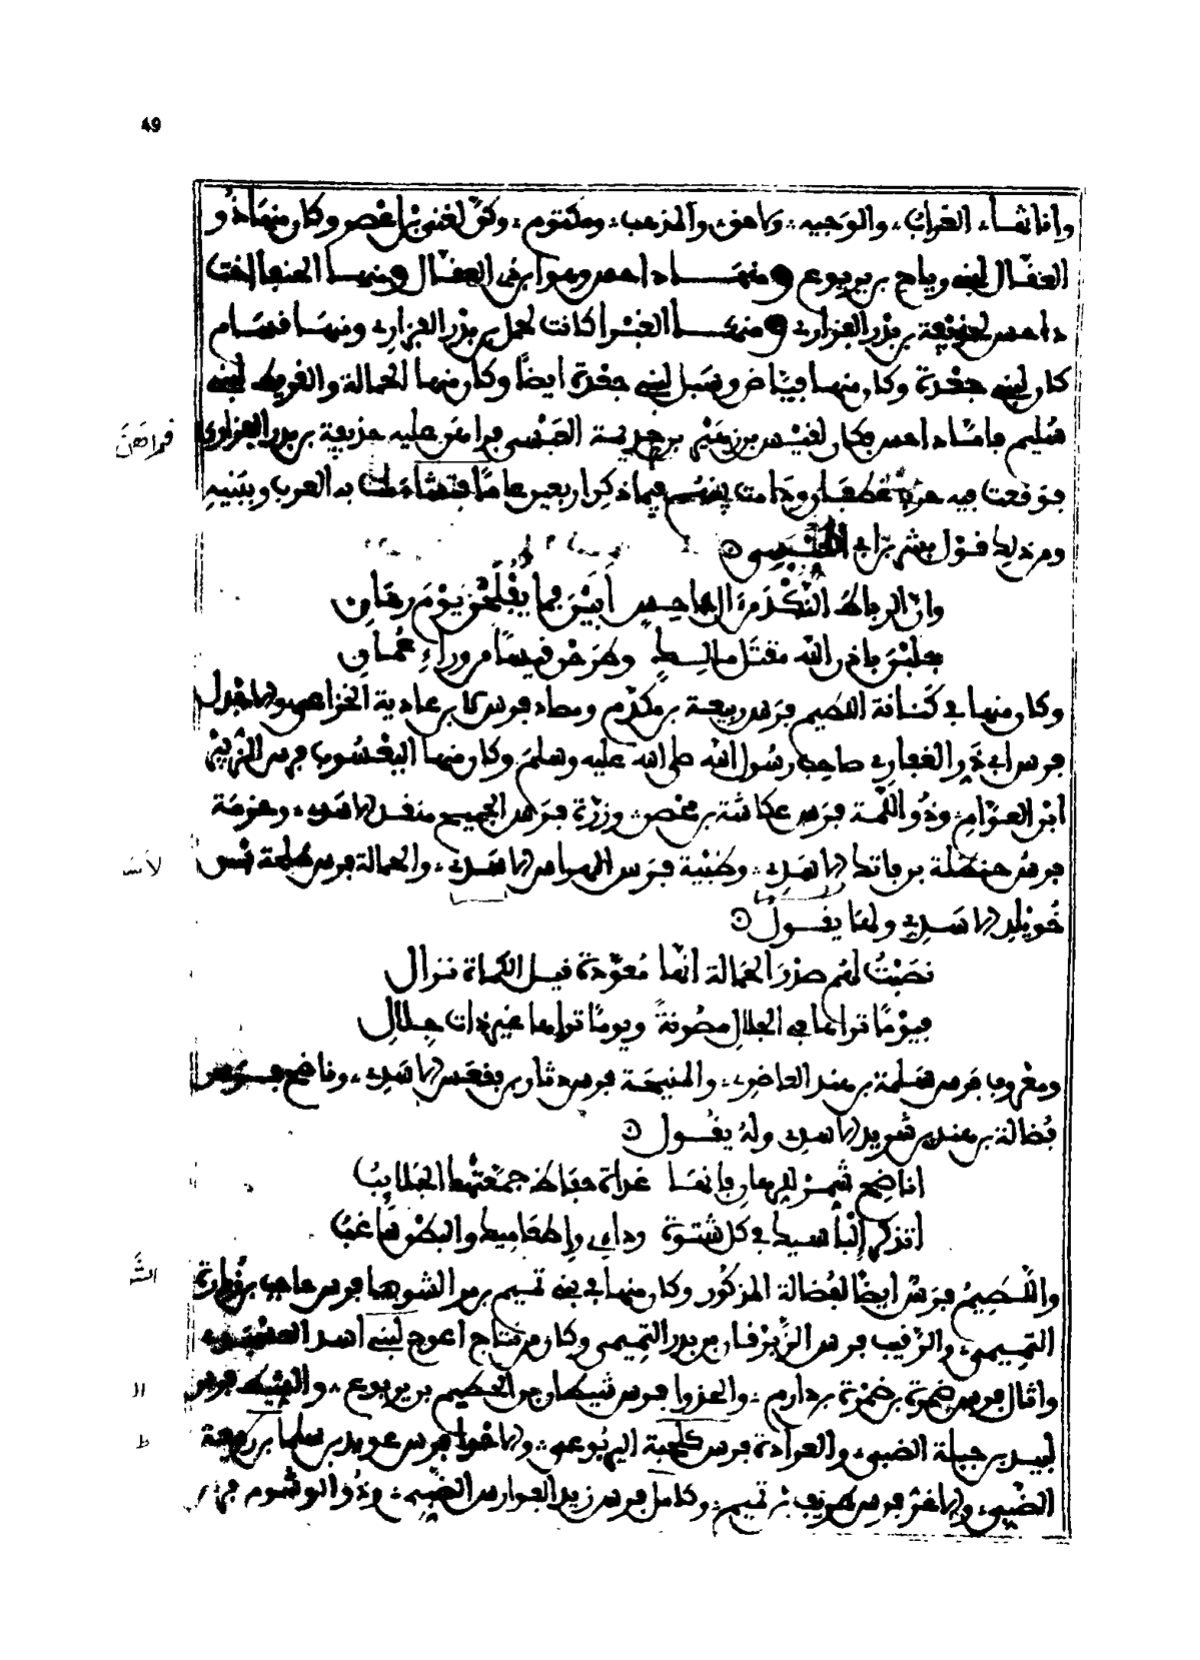 49
وإناثها، الغراب، والوجيه، ولاحق، والمذهب، ومكتوم، وكن لغني بن أعصر وكان منها ذو
العقال لبني رياح بن يربوع ومنها داحس وهو ابن ذي العقال ومنها الحنفاء أخت
داحس لحذيفة بن بدر الفزاري ومنها الغبرا كانت لحمل بن بدر الفزاري ومنها قسام
كان لبني جعدة وكان منها فياض وسبل لبني جعدة أيضا وكان منها الحمالة والقريظ لبني
سليم فأما داحس فكان لقيس بن زهير بن جذيمة العبسي فراهن عليه حذيفة بن بدر الفزاري
فمراهن
فوقعت فيه حرب غطفان ودامت بينهم فيما ذكر أربعين عاما فتشاءمت به العرب وببنيه
ومن ذلك قول بشر بن أبي العبسي
وإن الرباط النكد من آل داحس أبين فما يفلحن يوم رهان
جلبن بإذن الله مقتل مالك وطرحن قيسا من وراء عمان
وكان منها في كنانة اللطيم فرس ربيعة بن مكدم ومصاد فرس كابر عادية الخزاعي والأجدل
فرس أبي ذر الغفاري صاحب رسول الله صلى الله عليه وسلم وكان منها اليعسوب فرس الزبير
ابن العوام، وذو اللمة فرس عكاشة بن محصن، وزرة فرس الجميح منقذ الأسدي، وحزمة
فرس حنظلة بن فاتك الأسدي، وظبية فرس الهراس الأسدي، والحمالة فرس طلحة بن
لاسـ
خويلد الأسدي ولها يقول
نصبت لهم صدر الحمالة إنها معودة قيل الكماة نزال
فيوما تراها في الجلال مصونة ويوما تراها غير ذات جلال
ومعروف فرس سلمة بن هند الغاضري، والمنيحة فرس دثار بن فقعس الأسدي، وناضح فرس
فضالة بن هند بن شريد الأسدي وله يقول
أناضح شمر للرهان فإنها غداة حفاظ جمعتها الحلائب
أتذكر إلباسيك في كل شتوة ردائي وإطعاميك والبطن ساغب
واللطيم فرس أيضا لفضالة المذكور وكان منها في بني تميم بن مر الشوهاء فرس حاجب بن زرارة
الشَّـ
التميمي، والرقيب فرس الزبرقان بن بدر التميمي وكان من نتاج أعوج لبني أسد
وأثال فرس ضمرة بن ضمرة بن دارم، والغزوا فرس شيطان بن الحكيم بن يربوع، والشيط فرس
لبيد بن جبلة الضبي، والعرادة فرس كلحبة اليربوعي، والأحوا فرس عويد بن سلما بن ربيعة
الضبي، والأغر فرس طريف بن تميم، وكامل فرس زيد الفوارس الضبي، وذو الوشوم فرس